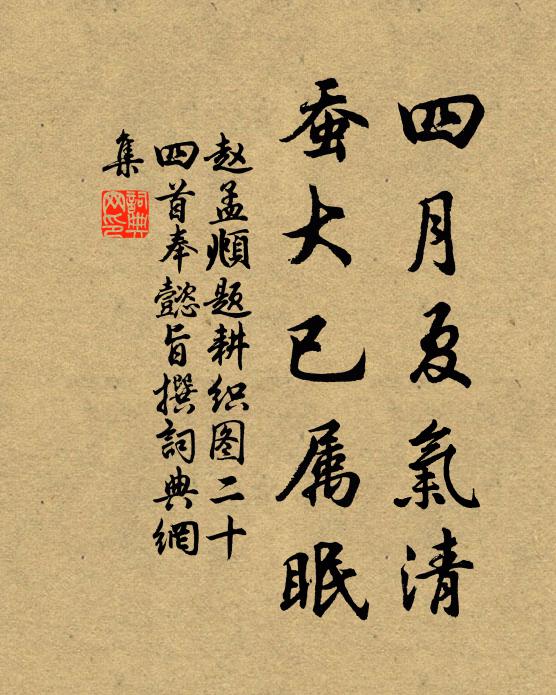 四月夏氣清
蚕大已属眠
赵孟頫题耕织图二十
四首奉懿旨撰詞典網
集
詞典
网印